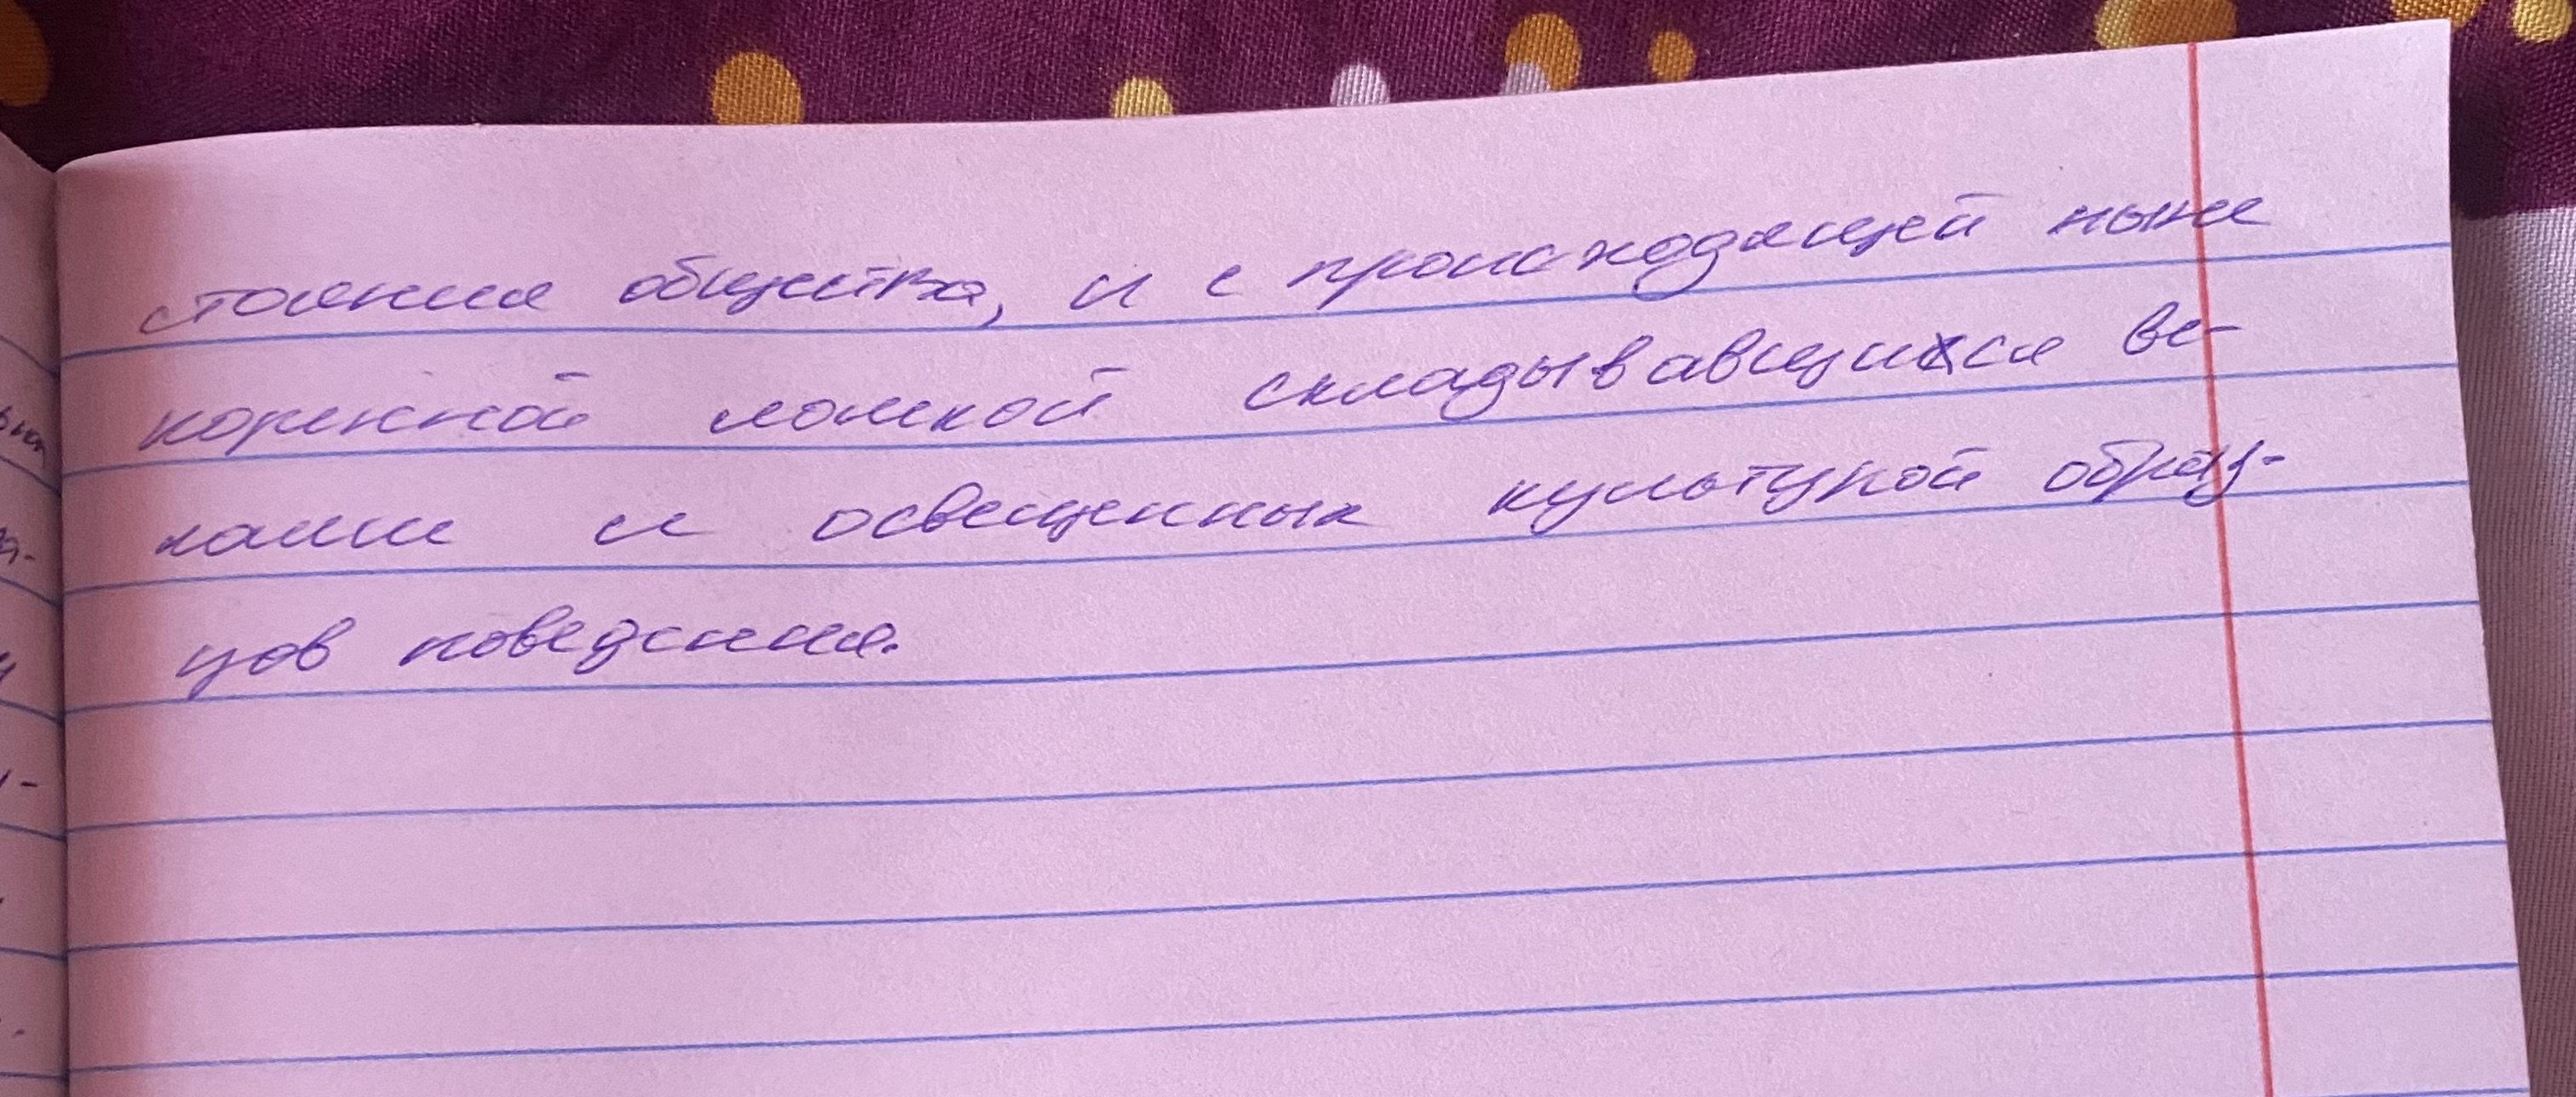 стояния общества, и с происходящей ныне
коренной ломкой складывавшихся ве-
ками и освещенных культурой образ-
цов поведения.